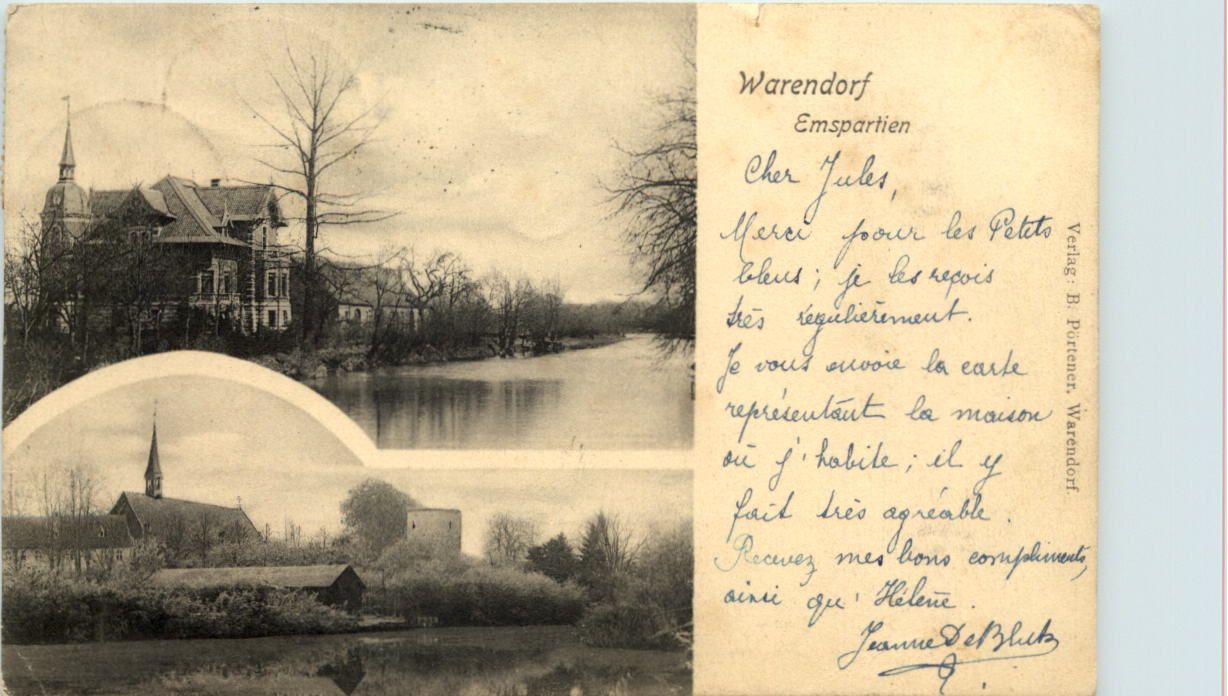 Warendorf
Emspartien
Cher Jules,
Merci pour les Petits
bleus ; je les reçois
très régulièrement.
Je vous envoie la carte
représentant la maison
où j'habite ; il y
fait très agréable.
Recevez mes bons compliments,
ainsi qu' Hélène.
Jeanne De
Verlag: B. Pörtener, Warendorf.